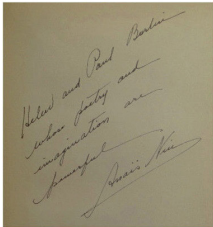 Helen and Paul Berlin
whose poetry and
imagination are
powerful
Anaïs Nin